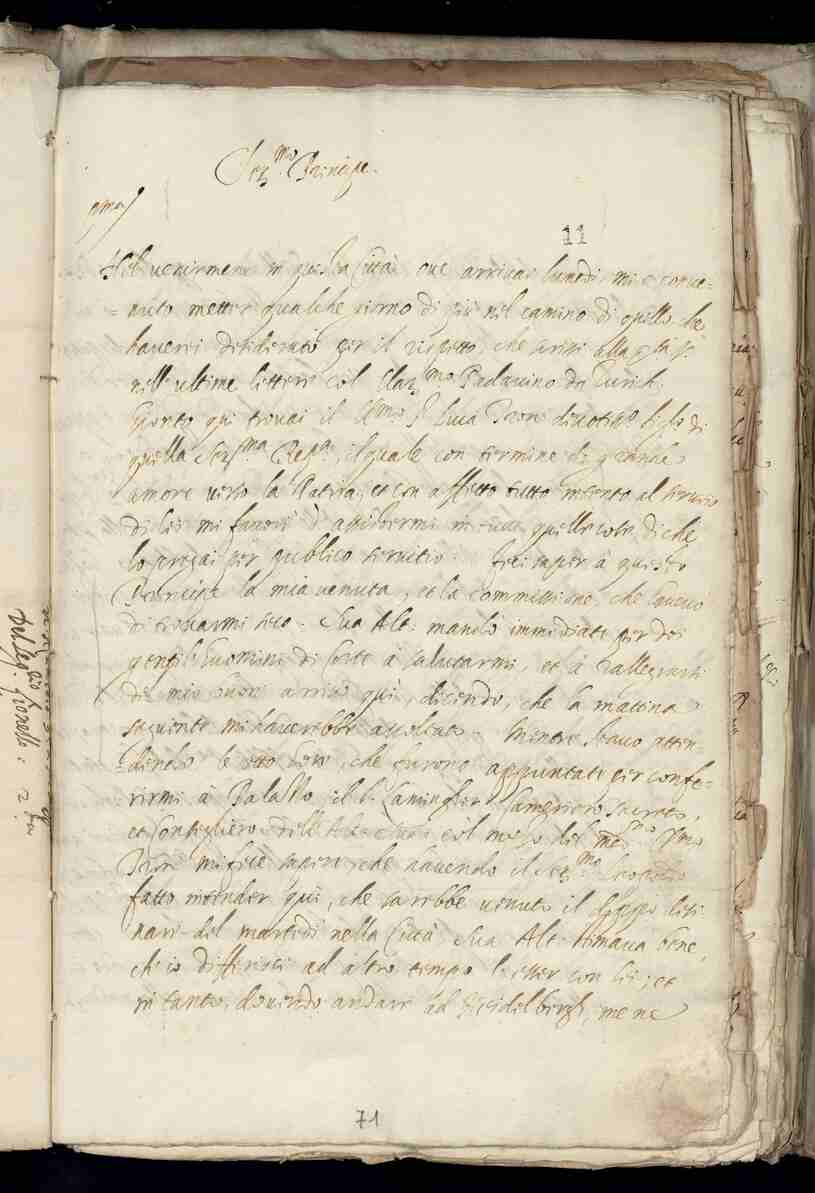 Ser.mo Principe.
p.ma
11
Nel venirmene in questa Città ove arrivai lunedì mi è conve=
= nuto metter qualche giorno di più nel camino di quello che
haverei desiderato per il rispetto, che scrissi alla
nell'ultime lettere col Clar.mo Padavino da Zurich.
Gionto qui trovai il S.r Luca Tron di
quella Ser.ma Rep.ca, il quale con termine di grande
amore verso la Patria, et con affetto tutto intento al servitio
di lei mi favorì d'assistermi in tutte quelle cose, di che
lo pregai per publico servitio. Feci saper à questo
Principe la mia venuta, et la commissione, che havevo
di trovarmi seco. Sua Alt. mandò immediate per doi
gentilhuomini di Corte à salutarmi, et à rallegrarsi
di mio buon arrivo quì, dicendo, che la mattina
seguente mi haverebbe ascoltato. Mentre stavo atten=
=dendo le otto hore, che furono appuntate per confe=
rirmi à Palazzo, il Cameriero secreto,
et Consigliero dell'Alt. Sua col mezo del med.mo
Tron mi fece sapere, che havendo il Ser.mo
fatto intender quì, che sarebbe venuto il
del martedì nella Città, Sua Alt. stimava bene,
ch'io differissi ad altro tempo l'esser con lei; et
in tanto, dovendo andar ad Heidelbergh, me ne
71